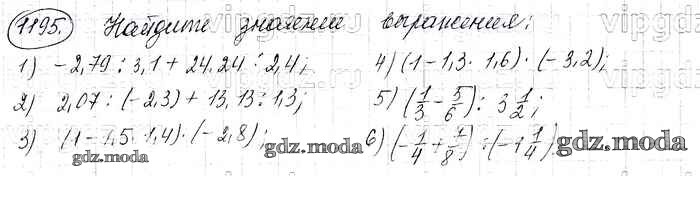 1195. Найдите значении выражения:
1) -2,79 : 3,1 + 24,24 : 2,4; 4) (1 - 1,3 · 1,6) · (-3,2);
2) 2,07 : (-2,3) + 13,13 : 1,3; 5) (1/3 - 5/6) : 3 1/2;
3) (1 - 1,5 · 1,4) · (-2,8); 6) (-1/4 + 1/8) : (-1 1/4)
gdz.moda gdz.moda gdz.moda
vipgdz